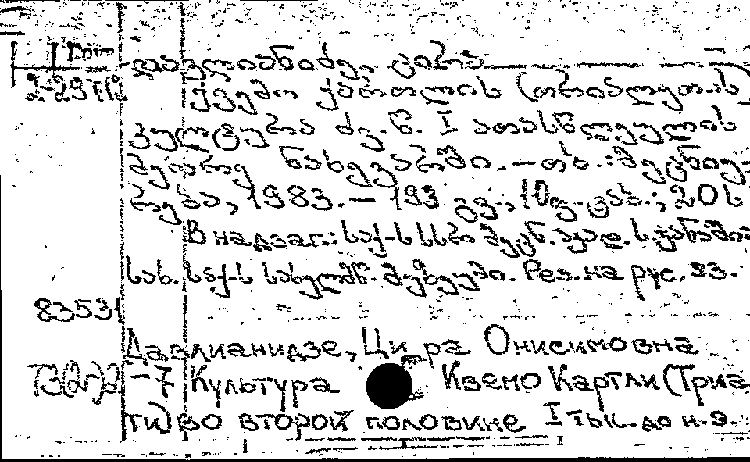 დავლიანიძე, ცირა
ქვემო ქართლის (თრიალეთის)
კულტურა ძვ. წ. I ათასწლეულის
მეორე ნახევარში. – თბ.: მეცნიე-
რება, 1983. – 193 გვ., 10 ფ. ტაბ.; 20 ს
В надзаг.: საქ-ს სსრ მეცნ. აკად. ს. ჯანაშიას
სახ. საქ-ს სახელმწ. მუზეუმი. Рез. на рус. яз.
83531
Давлианидзе, Цира Онисимовна
-7 Культура Квемо Картли (Триа
ти) во второй половине I тыс. до н.э.